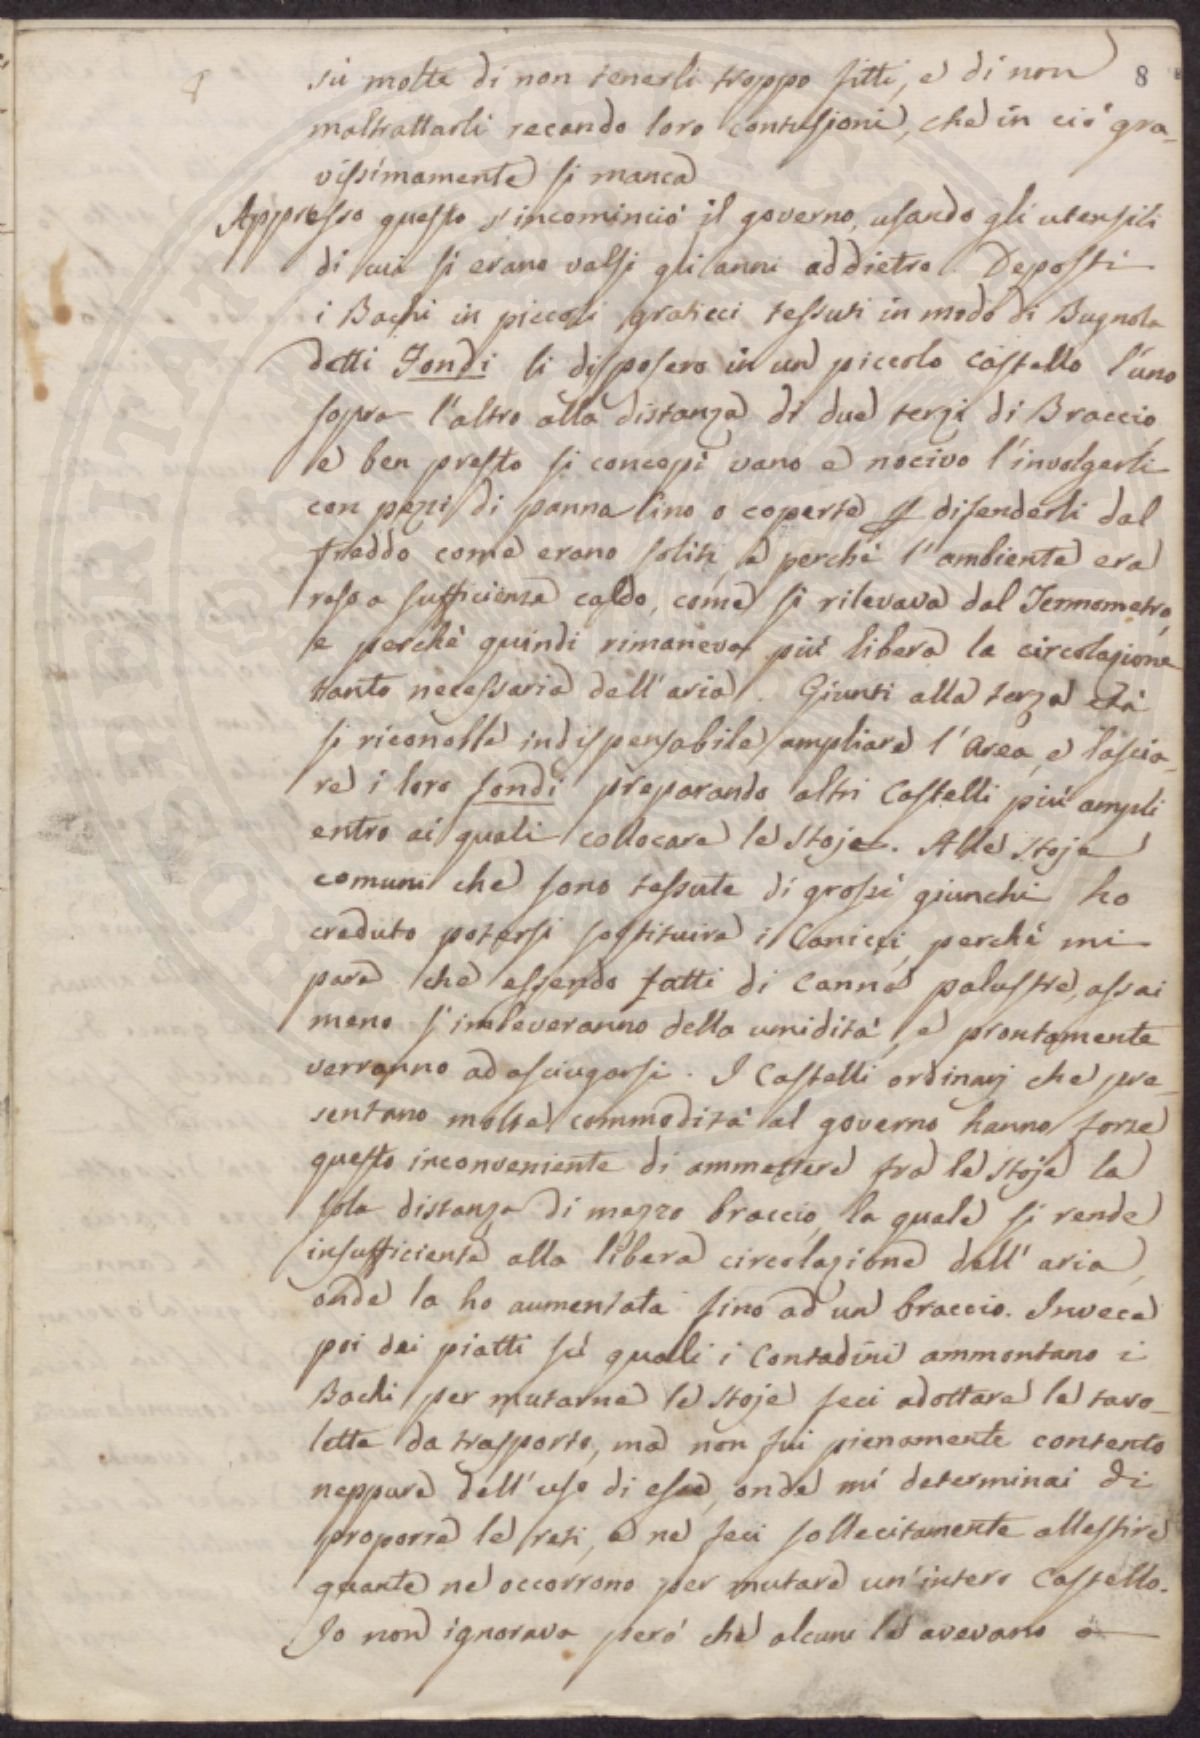 8
8
sù molte di non tenerli troppo fitti, e di non
maltrattarli recando loro contusioni, che in ciò gra-
vissimamente si manca
Appresso questo s'incominciò il governo, usando gli utensili
di cui si erano valsi gli anni addietro. Deposti
i Bachi in piccoli graticci tessuti in modo di Bugnola
detti Fondi li disposero in un piccolo Castello l'uno
sopra l'altro alla distanza di due terzi di Braccio,
e ben presto si concepì vano e nocivo l'involgerli
con pezzi di panna lino o coperte p difenderli dal
freddo come erano soliti, e perchè l'ambiente era
reso a sufficienza caldo, come si rilevava dal Termometro,
e perchè quindi rimaneva più libera la circolazione
tanto necessaria dell'aria. Giunti alla terza età
si riconobbe indispensabile ampliare l'Area, e lascia-
re i loro fondi preparando altri Castelli più ampli
entro ai quali collocare le stoje. Alle stoje
comuni che sono tessute di grossi giunchi ho
creduto potersi sostituire i Canicci, perchè mi
pare che essendo fatti di Canne palustre, assai
meno s'imbeveranno della umidità, e prontamente
verranno ad asciugarsi. I Castelli ordinarj che pre-
sentano molte commodità al governo hanno forse
questo inconveniente di ammettere fra le stoje la
sola distanza di mezzo braccio, la quale si rende
insufficiente alla libera circolazione dell'aria,
onde la ho aumentata fino ad un braccio. Invece
poi dei piatti sù quali i Contadini ammontano i
Bachi per mutarne le stoje feci adottare le tavo-
lette da trasporto, ma non fui pienamente contento
neppure dell'uso di esse, onde mi determinai di
proporre le reti, e ne feci sollecitamente allestire
quante ne occorrono per mutare un'intero Castello.
Io non ignorava però che alcuni le avevano